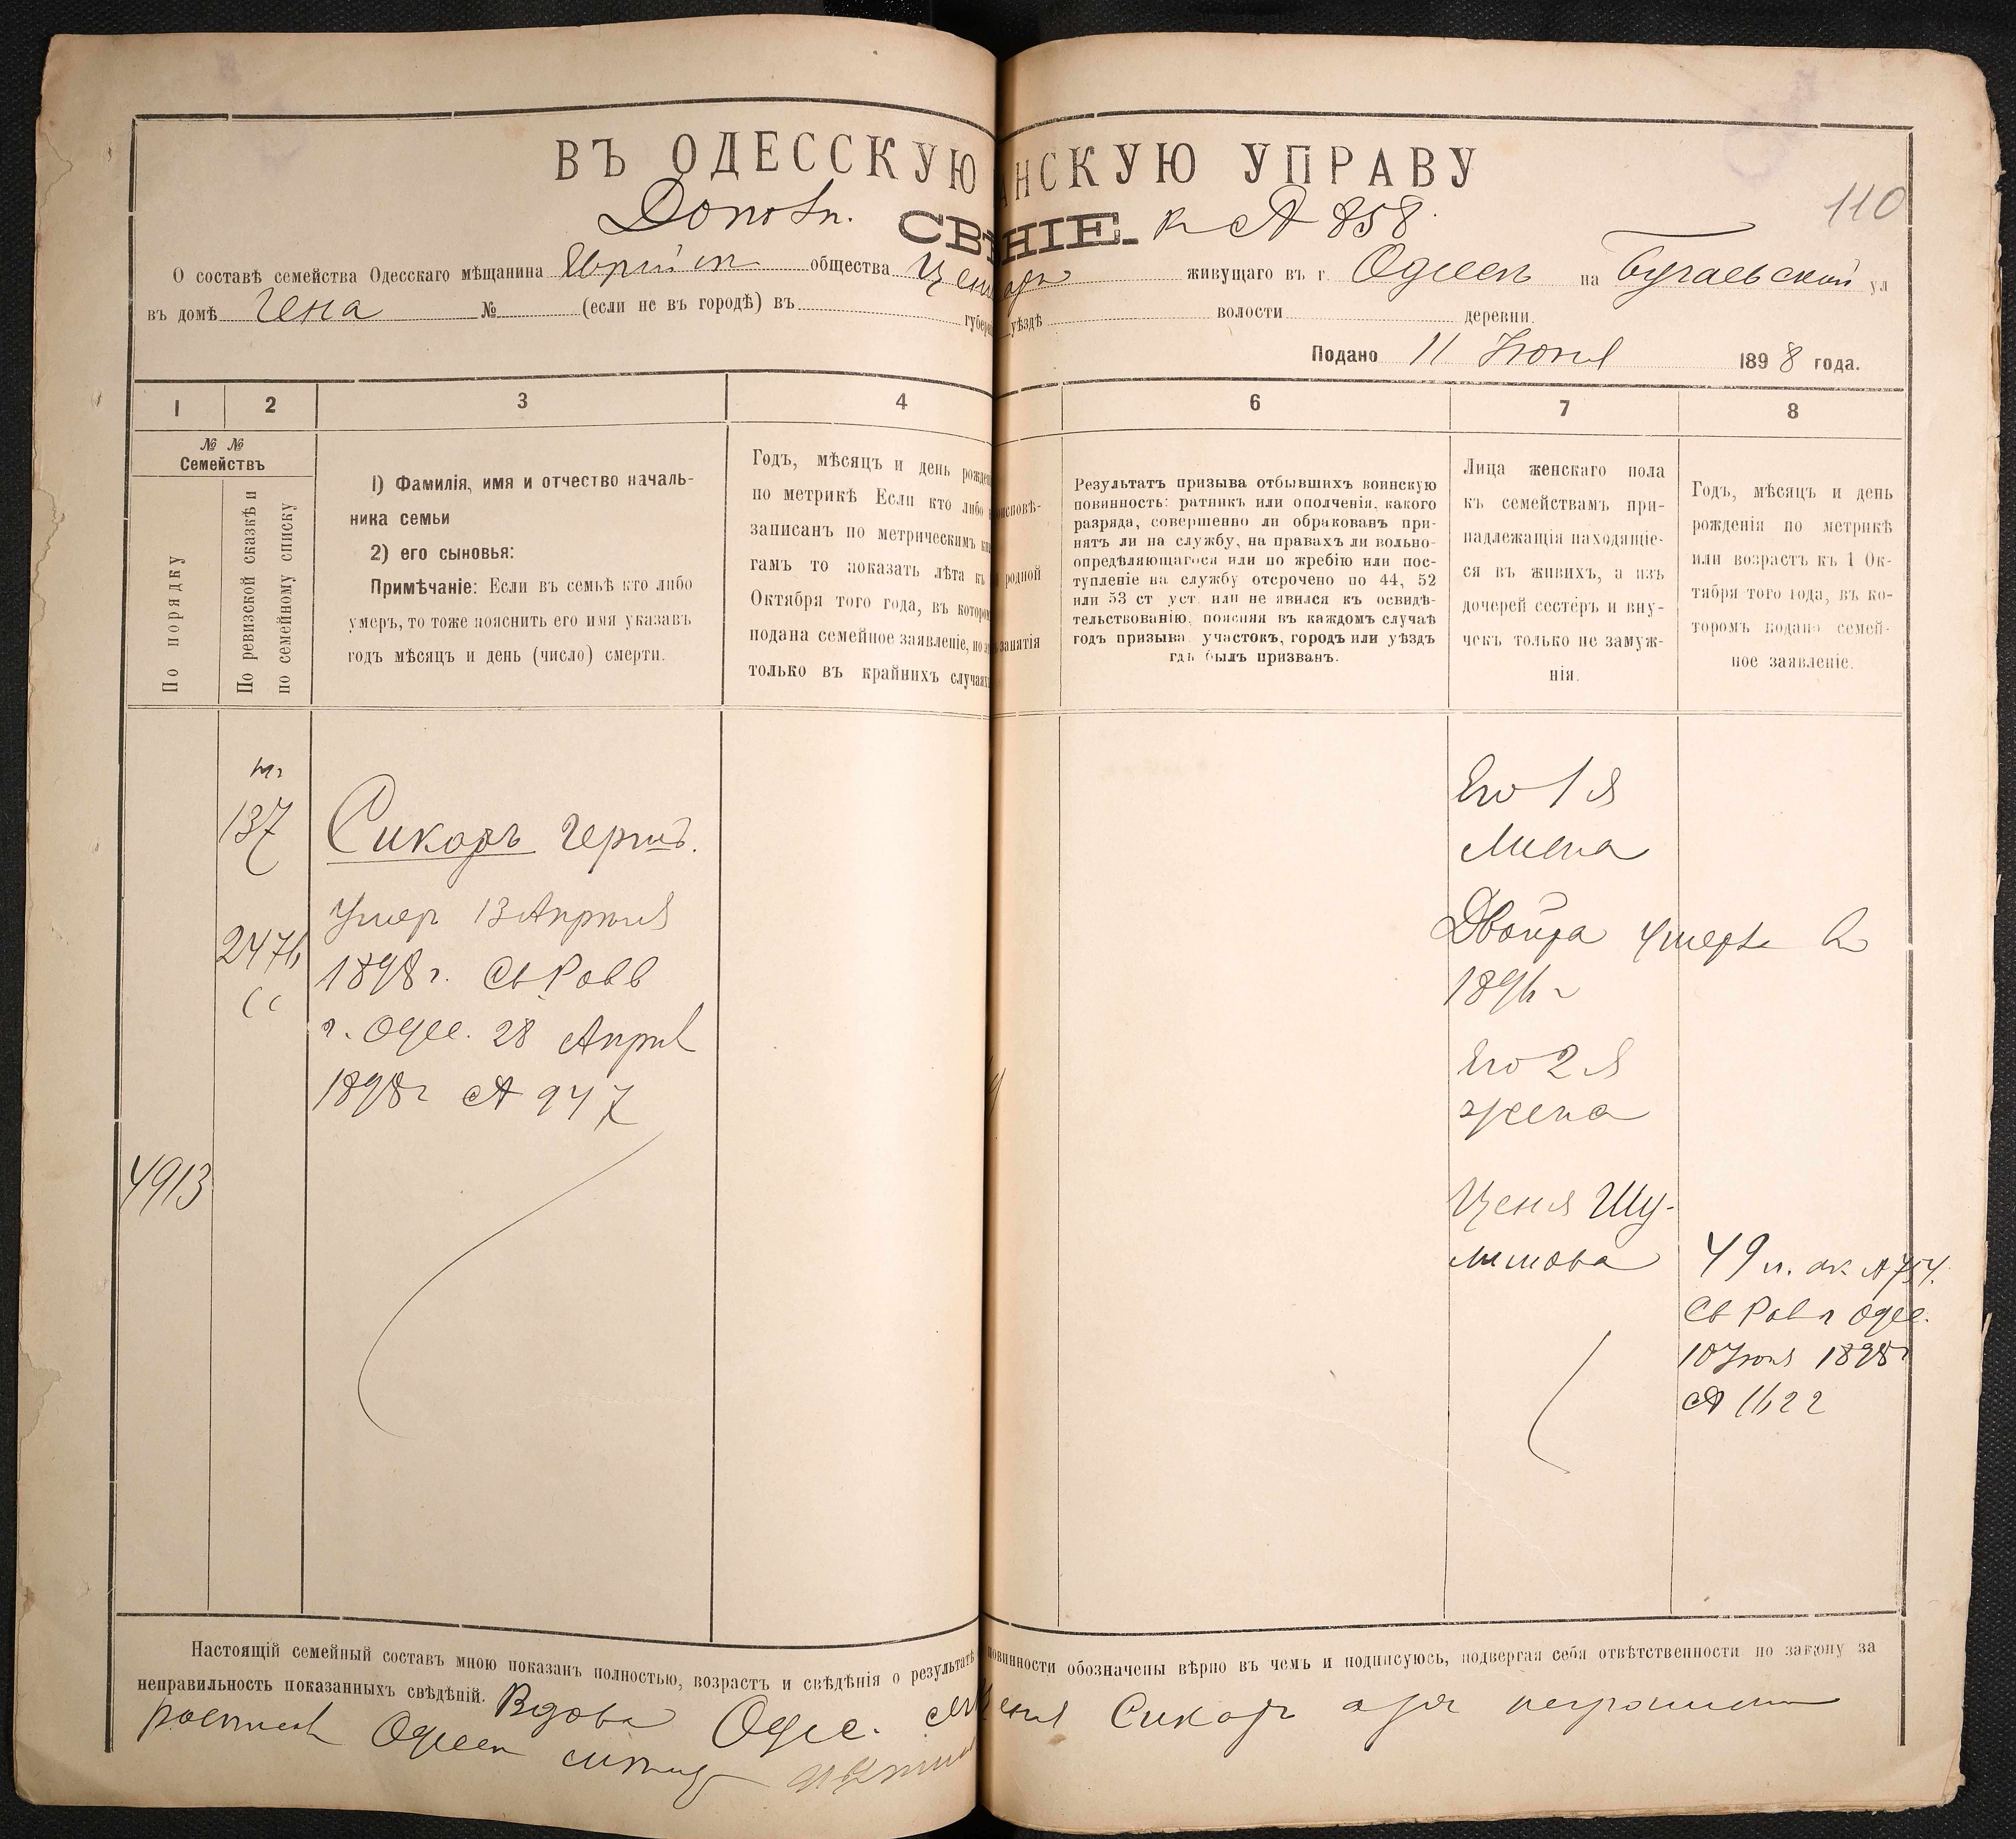 ВЪ ОДЕССКУЮ АНСКУЮ УПРАВУ
СВ НІЕ. к № 858
110
О составѣ семейства Одесскаго мѣщанина общества живущаго въ г. Одессѣ на Бугаевской ул
въ домѣ Гена № (если не въ городѣ) въ губер уѣздѣ волости деревни
Подано 11 Іюня 1898 года.
1 2 3 4 6 7 8
№ № Семействъ
По порядку
По ревизской сказкѣ и по семейному списку
1) Фамилія, имя и отчество началь-
ника семьи
2) его сыновья:
Примѣчаніе: Если въ семьѣ кто либо
умеръ, то тоже пояснить его имя указавъ
годъ мѣсяцъ и день (число) смерти.
Годъ, мѣсяцъ и день рожде
по метрикѣ Если кто либо
записанъ по метрическимъ кни
гамъ то показать лѣта къ
Октября того года, въ котором
подана семейное заявленіе, но
только въ крайнихъ случаях
исповѣ-
родной
занятія
Результатъ призыва отбывшихъ воинскую
повинность: ратникъ или ополченія, какого
разряда, совершенно ли обракованъ при-
нятъ ли на службу, на правахъ ли вольно-
опредѣляющагося или по жребію или пос-
тупленіе на службу отсрочено по 44, 52
или 53 ст уст. или не явился къ освидѣ-
тельствованію, поясняя въ каждомъ случаѣ
годъ призыва участокъ, городъ или уѣздъ
гдѣ былъ призванъ.
Лица женскаго пола
къ семействамъ при-
надлежащія находящіе-
ся въ живихъ, а изъ
дочерей сестеръ и вну-
чекъ только не замуж-
нія.
Годъ, мѣсяцъ и день
рожденія по метрикѣ
или возрастъ къ 1 Ок-
тября того года, въ ко-
торомъ подано семей-
ное заявленіе.
137
4913
Сикоръ Герш
Умер 13 Апрѣля
1898 г. Св Рав
г. Одес. 28 Апрѣл
1898 г № 947
Его 1 я
Двойра умерла в
1896 г
Его 2 я
жена
Ценя Шу-
лимова
49 л.
Св Рав г Одес.
10 Іюня 1898 г
№ 1622
Настоящій семейный составъ мною показанъ полностью, возрастъ и свѣдѣнія о результатѣ повинности обозначены вѣрно въ чемъ и подписуюсь, подвергая себя отвѣтственности по закону за
неправильность показанныхъ свѣдѣній. Вдова Одес. Сикоръ